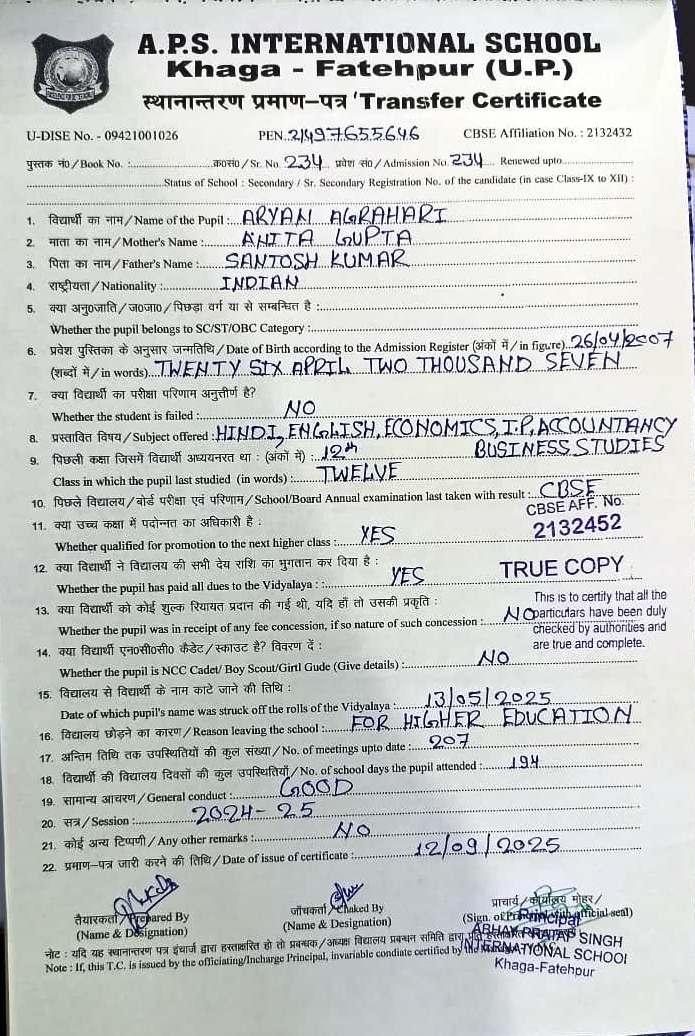 A.P.S. INTERNATIONAL SCHOOL
Khaga - Fatehpur (U.P.)
स्थानान्तरण प्रमाण-पत्र 'Transfer Certificate
U-DISE No. - 09421001026 PEN. 21497655646 CBSE Affiliation No. : 2132432
पुस्तक नं०/Book No. : क०सं०/Sr. No. 234 प्रवेश सं०/Admission No. 234 Renewed upto
Status of School : Secondary / Sr. Secondary Registration No. of the candidate (in case Class-IX to XII) :
1. विद्यार्थी का नाम/Name of the Pupil : ARYAN AGRAHARI
2. माता का नाम/Mother's Name : ANITA GUPTA
3. पिता का नाम/Father's Name : SANTOSH KUMAR
4. राष्ट्रीयता/Nationality : INDIAN
5. क्या अनु०जाति/ज०जा०/पिछड़ा वर्ग या से सम्बन्धित है :
Whether the pupil belongs to SC/ST/OBC Category :
6. प्रवेश पुस्तिका के अनुसार जन्मतिथि/Date of Birth according to the Admission Register (अंकों में/in figure) 26/04/2007
(शब्दों में/in words) TWENTY SIX APRIL TWO THOUSAND SEVEN
7. क्या विद्यार्थी का परीक्षा परिणाम अनुत्तीर्ण है?
Whether the student is failed : NO
8. प्रस्तावित विषय/Subject offered : HINDI, ENGLISH, ECONOMICS, I.P, ACCOUNTANCY
BUSINESS STUDIES
9. पिछली कक्षा जिसमें विद्यार्थी अध्ययनरत था : (अंकों में) : 12th
Class in which the pupil last studied (in words) : TWELVE
10. पिछले विद्यालय/बोर्ड परीक्षा एवं परिणाम/School/Board Annual examination last taken with result : CBSE
CBSE AFF. No.
2132452
11. क्या उच्च कक्षा में पदोन्नत का अधिकारी है :
Whether qualified for promotion to the next higher class : YES
12. क्या विद्यार्थी ने विद्यालय की सभी देय राशि का भुगतान कर दिया है :
Whether the pupil has paid all dues to the Vidyalaya : : YES
TRUE COPY
This is to certify that all the
particulars have been duly
checked by authorities and
are true and complete.
13. क्या विद्यार्थी को कोई शुल्क रियायत प्रदान की गई थी, यदि हाँ तो उसकी प्रकृति :
Whether the pupil was in receipt of any fee concession, if so nature of such concession : NO
14. क्या विद्यार्थी एन०सी०सी० कैडेट/स्काउट है? विवरण दें :
Whether the pupil is NCC Cadet/ Boy Scout/Girtl Gude (Give details) : NO
15. विद्यालय से विद्यार्थी के नाम काटे जाने की तिथि :
Date of which pupil's name was struck off the rolls of the Vidyalaya : 13/05/2025
16. विद्यालय छोड़ने का कारण/Reason leaving the school : FOR HIGHER EDUCATION
17. अन्तिम तिथि तक उपस्थितियों की कुल संख्या/No. of meetings upto date : 207
18. विद्यार्थी की विद्यालय दिवसों की कुल उपस्थितियाँ/No. of school days the pupil attended : 194
19. सामान्य आचरण/General conduct : GOOD
20. सत्र/Session : 2024-25
21. कोई अन्य टिप्पणी/Any other remarks : NO
22. प्रमाण-पत्र जारी करने की तिथि/Date of issue of certificate : 12/09/2025
तैयारकर्ता/Prepared By
(Name & Designation)
जाँचकर्ता/Chaked By
(Name & Designation)
प्राचार्य/कार्यालय मोहर/
(Sign. of Principal with official seal)
Principal
ABHAY PRATAP SINGH
INTERNATYONAL SCHOOl
Khaga-Fatehpur
नोट : यदि यह स्थानान्तरण पत्र इंचार्ज द्वारा हस्ताक्षरित हो तो प्रबन्धक/अध्यक्ष विद्यालय प्रबन्धन समिति द्वारा
Note : If, this T.C. is issued by the officiating/Incharge Principal, invariable condiate certified by the